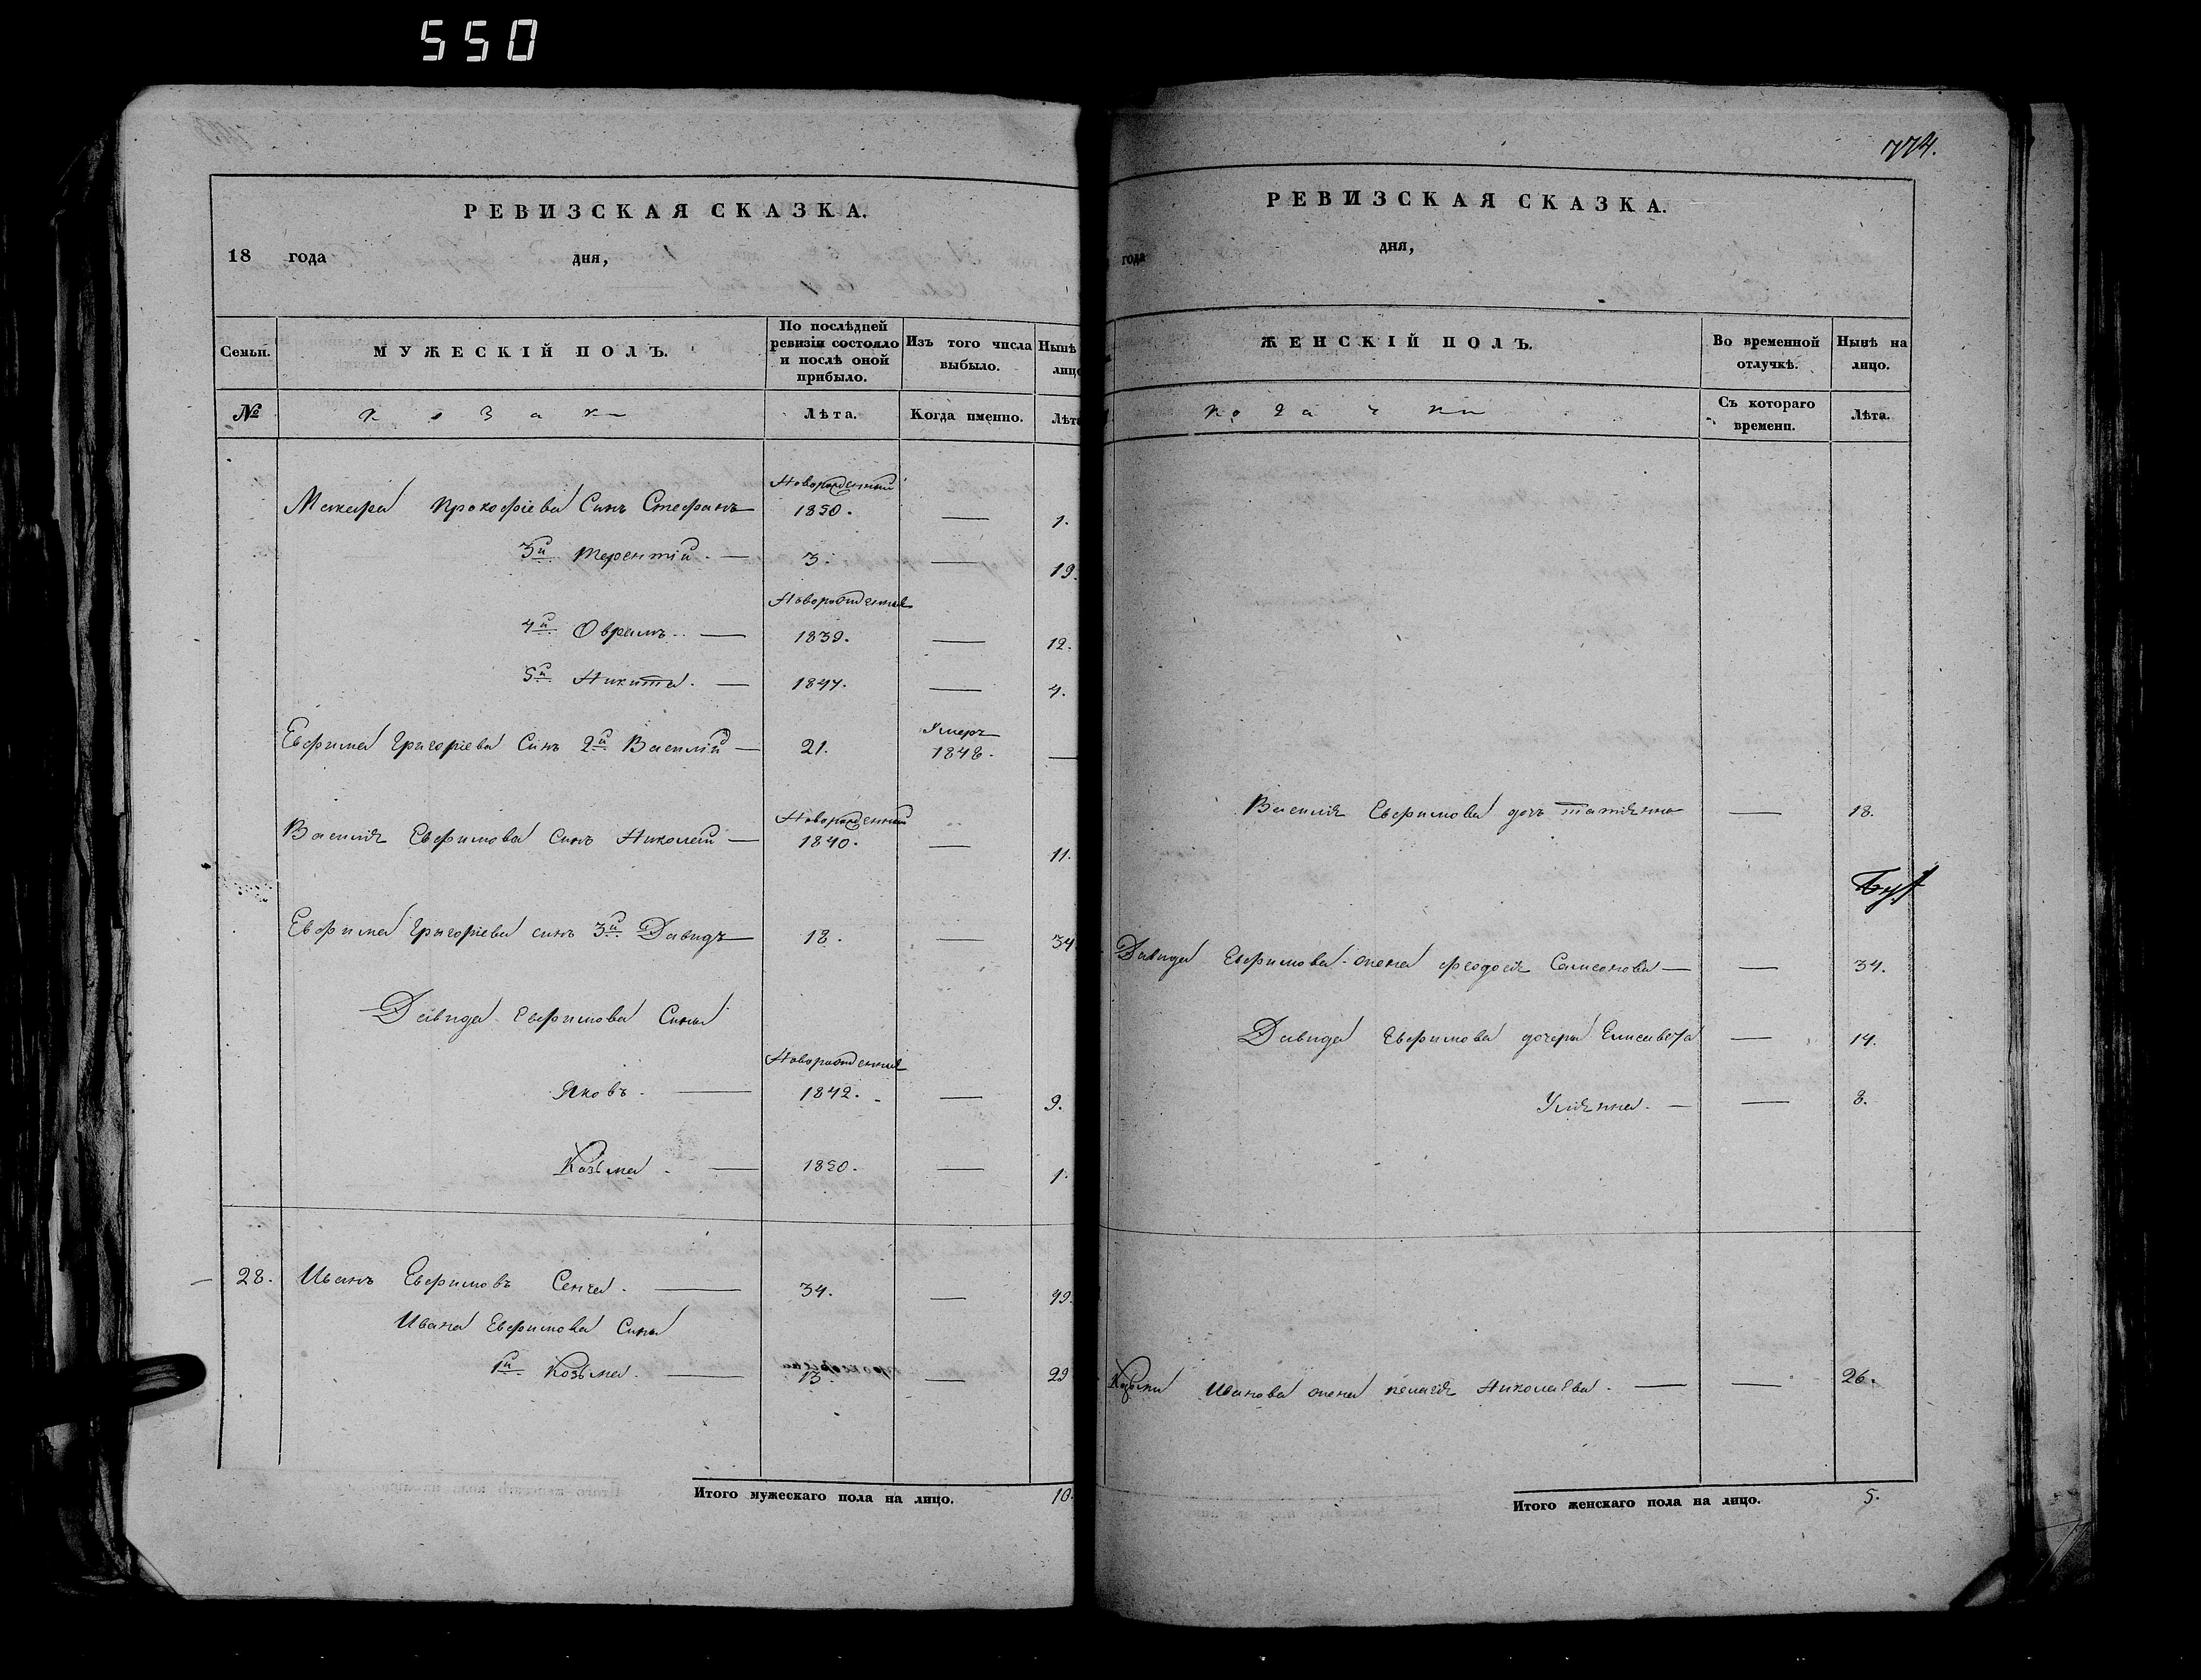 550
РЕВИЗСКАЯ СКАЗКА.
18 года дня,
Семьи.
МУЖЕСКІЙ ПОЛЪ.
По послѣдней ревизіи состояло и послѣ оной прибыло.
Изъ того числа выбыло.
Нынѣ лицо
№
козаки
Лѣта.
Когда именно.
Лѣта
Новорожденный
Макара Прокофіева Синъ Стефанъ — 1850. — 1.
3й Терентій. — 3. — 19.
Новорожденные
4й Оврамъ. — 1839. — 12.
5й Никита. — 1847. — 4.
Евфима Григоріева Синъ 2й Василій — 21. Умеръ 1848. —
Новорожденный
Василія Евфимова Синъ Николай — 1840. — 11.
Евфима Григоріева синъ 3й Давидъ — 18. — 34
Давида Евфимова Сины
Новорожденные
Яковъ. — 1842. — 9.
Козьма. — 1850. — 1.
28. Иванъ Евфимовъ Сенча. — 34. — 49.
Ивана Евфимова Сины
1й Козьма. — 13. — 29
Итого мужескаго пола на лицо. 10.
774.
РЕВИЗСКАЯ СКАЗКА.
года дня,
ЖЕНСКІЙ ПОЛЪ.
Во временной отлучкѣ.
Нынѣ на лицо.
козачки
Съ котораго времени.
Лѣта.
Василія Евфимова дочь Татіянна — 18.
Давида Евфимова жена Феодосія Самсонова — — 34.
Давида Евфимова дочери Елисавета — 14.
Уліянна. — — 8.
Козьмы Иванова жена Пелагія Николаева. — — 26.
Итого женскаго пола на лицо. 5.